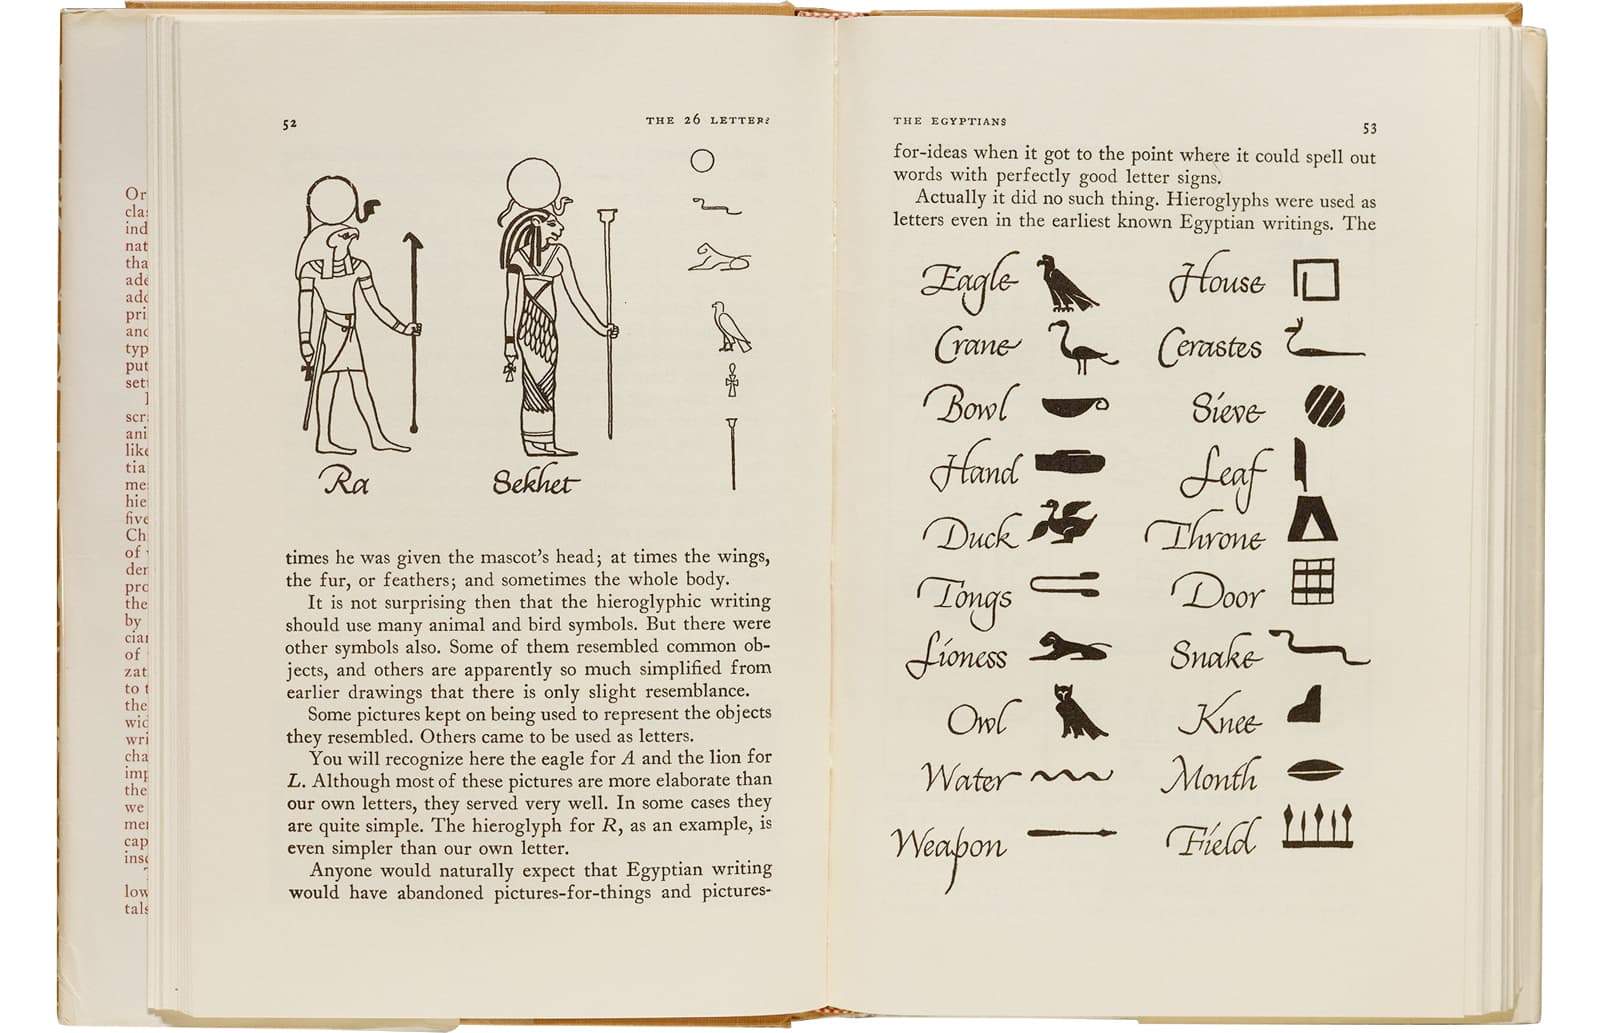 Or
cla
ind
nat
tha
ade
add
pri
and
typ
put
set
scr
ani
like
tia
me
hie
five
Ch
of
der
pro
the
by
cia
of
zat
to t
the
wid
wri
cha
imp
the
we
me
cap
insc
low
tals
52
THE 26 LETTERS
Ra
Sekhet
times he was given the mascot's head; at times the wings,
the fur, or feathers; and sometimes the whole body.
It is not surprising then that the hieroglyphic writing
should use many animal and bird symbols. But there were
other symbols also. Some of them resembled common ob-
jects, and others are apparently so much simplified from
earlier drawings that there is only slight resemblance.
Some pictures kept on being used to represent the objects
they resembled. Others came to be used as letters.
You will recognize here the eagle for A and the lion for
L. Although most of these pictures are more elaborate than
our own letters, they served very well. In some cases they
are quite simple. The hieroglyph for R, as an example, is
even simpler than our own letter.
Anyone would naturally expect that Egyptian writing
would have abandoned pictures-for-things and pictures-
THE EGYPTIANS
53
for-ideas when it got to the point where it could spell out
words with perfectly good letter signs.
Actually it did no such thing. Hieroglyphs were used as
letters even in the earliest known Egyptian writings. The
Eagle
House
Crane
Cerastes
Bowl
Sieve
Hand
Leaf
Duck
Throne
Tongs
Door
Lioness
Snake
Owl
Knee
Water
Month
Weapon
Field